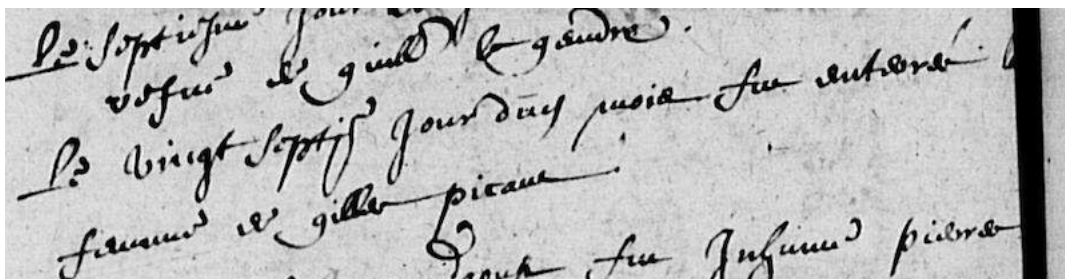 Le septiesme jour
vefve de guill le gendre.
Le vingt septiē jour dud mois fut enterrée
femme de gilles picaut.
fut Inhumé pierre